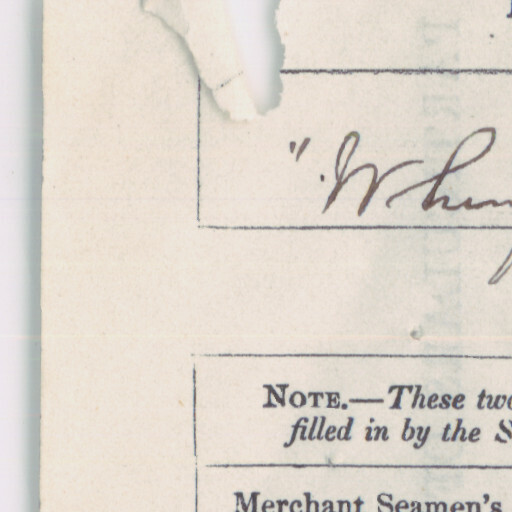 NOTE.—These two
filled in by the S
Merchant Seamen's